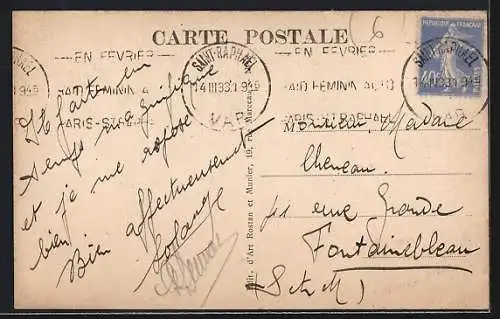 CARTE POSTALE
EN FEVRIER
RAID FEMININ A
PARIS-ST RAPHAEL
SAINT-RAPHAEL
14 III 33 19 45
VAR
EN FEVRIER
RAID FEMININ AUTO
PARIS-ST RAPHAEL
SAINT-RAPHAEL
REPUBLIQUE FRANÇAISE
40c
(6
Il fait un
temps magnifique
et je me repose
bien.
Bien affectueusement
Solange
Édit. d'Art Rostan et Munier, 19, rue Marceau
Monsieur, Madame
Cheneau
41 rue Grande
Fontainebleau
(S. & M)